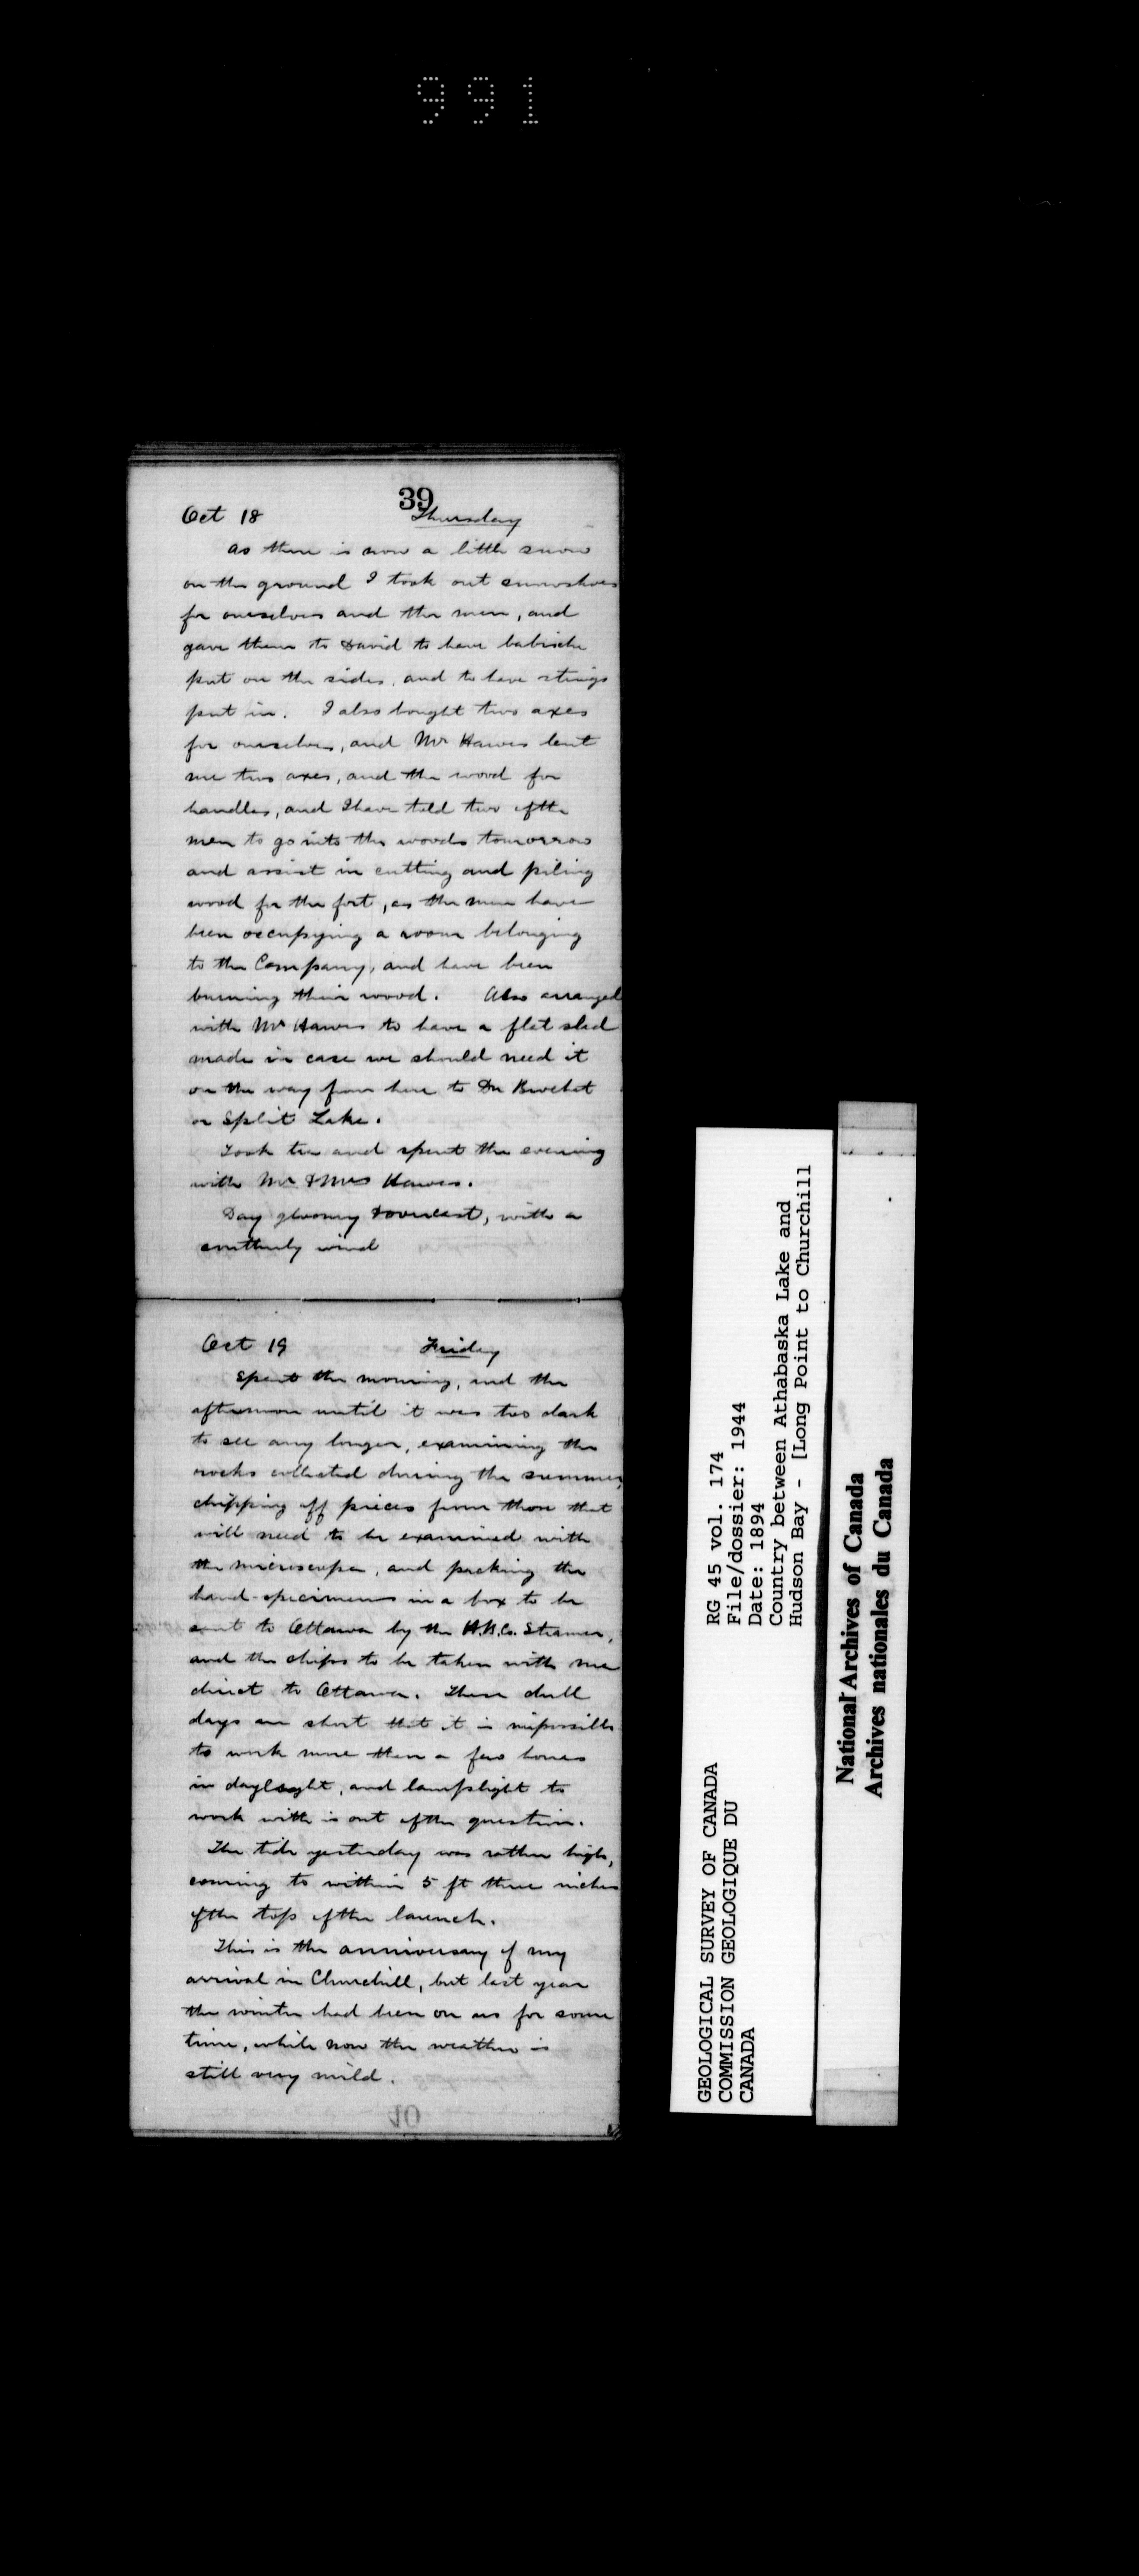 991
39
Oct 18 Thursday
As there is now a little snow
on the ground I took out snowshoes
for ourselves and the men, and
gave them to David to have babische
put on the sides, and to have strings
put in. I also bought two axes
for ourselves, and Mr Hawes lent
me two axes, and the wood for
handles, and I have told two of the
men to go into the woods tomorrow
and assist in cutting and piling
wood for the fort, as the men have
been occupying a room belonging
to the Company, and have been
burning their wood. Also arranged
with Mr Hawes to have a flat sled
made in case we should need it
on the way from here to Du Brochet
or Split Lake.
Took tea and spent the evening
with Mr & Mrs Hawes.
Day gloomy & overcast, with a
southerly wind
Oct 19 Friday
Spent the morning, and the
afternoon until it was too dark
to see any longer, examining the
rocks collected during the summer,
chipping off pieces from those that
will need to be examined with
the microscope, and packing the
hand specimens in a box to be
sent to Ottawa by the H.B.Co. Steamer,
and the chips to be taken with me
direct to Ottawa. These dull
days are short that it is impossible
to work more than a few hours
in daylight, and lamplight to
work with is out of the question.
The tide yesterday was rather high,
coming to within 5 ft three inches
of the top of the launch.
This is the anniversary of my
arrival in Churchill, but last year
the winter had been on us for some
time, while now the weather is
still very mild.
40
GEOLOGICAL SURVEY OF CANADA
COMMISSION GEOLOGIQUE DU
CANADA
RG 45 vol. 174
File/dossier: 1944
Date: 1894
Country between Athabaska Lake and
Hudson Bay - [Long Point to Churchill
National Archives of Canada
Archives nationales du Canada